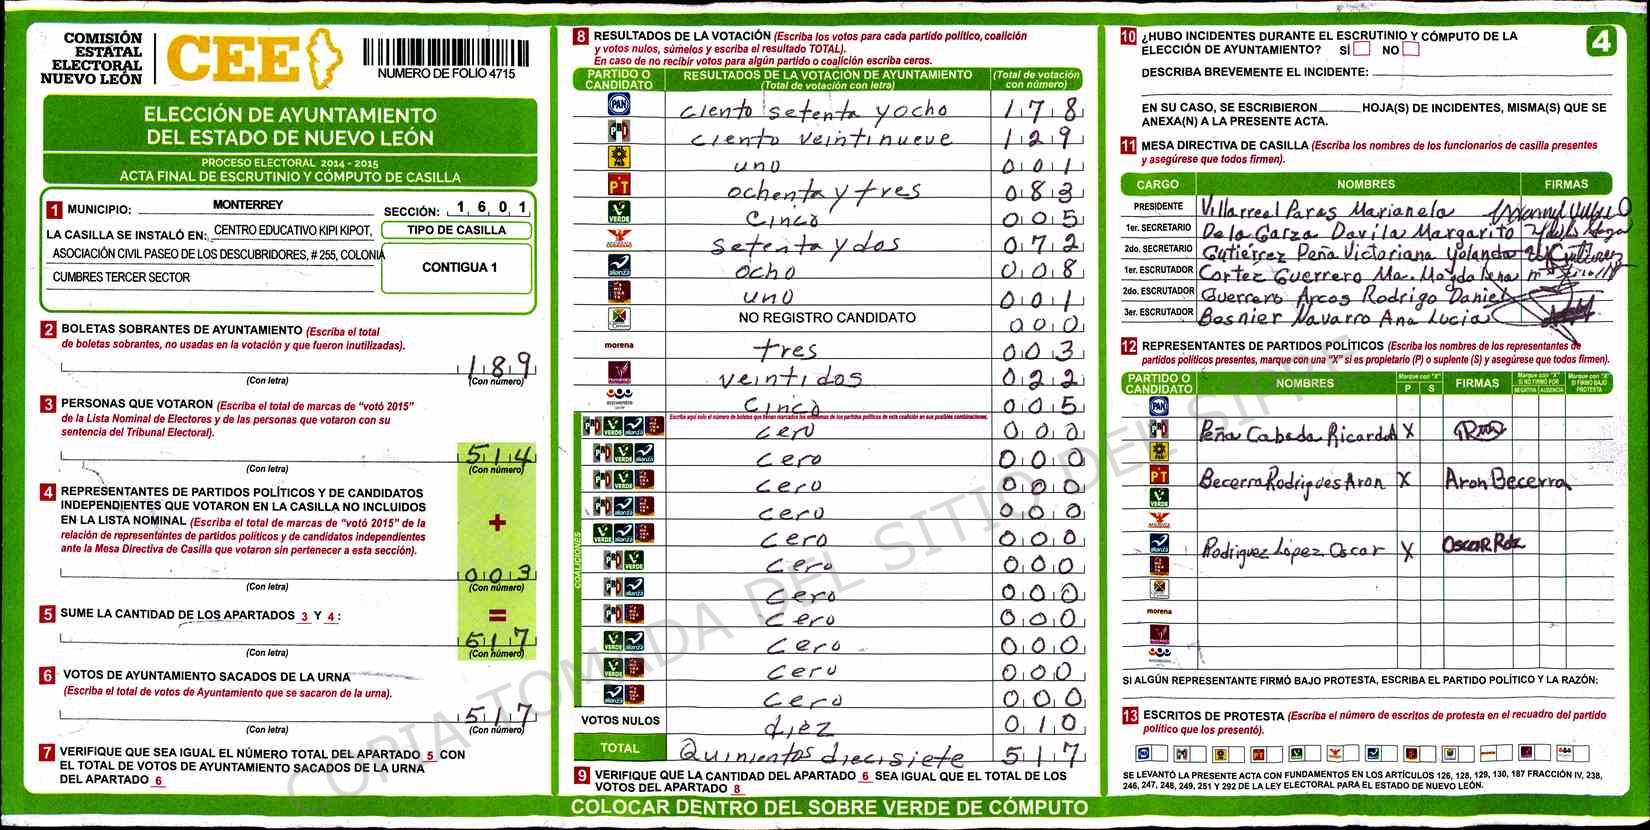 COMISIÓN
ESTATAL
ELECTORAL
NUEVO LEÓN
CEE
NUMERO DE FOLIO 4715
ELECCIÓN DE AYUNTAMIENTO
DEL ESTADO DE NUEVO LEÓN
PROCESO ELECTORAL 2014 - 2015
ACTA FINAL DE ESCRUTINIO Y CÓMPUTO DE CASILLA
1 MUNICIPIO: MONTERREY SECCIÓN: 1 6 0 1
LA CASILLA SE INSTALÓ EN: CENTRO EDUCATIVO KIPI KIPOT,
ASOCIACIÓN CIVIL PASEO DE LOS DESCUBRIDORES, # 255, COLONIA
CUMBRES TERCER SECTOR
TIPO DE CASILLA
CONTIGUA 1
2 BOLETAS SOBRANTES DE AYUNTAMIENTO (Escriba el total
de boletas sobrantes, no usadas en la votación y que fueron inutilizadas).
1 8 9
(Con letra) (Con número)
3 PERSONAS QUE VOTARON (Escriba el total de marcas de “votó 2015”
de la Lista Nominal de Electores y de las personas que votaron con su
sentencia del Tribunal Electoral).
5 1 4
(Con letra) (Con número)
4 REPRESENTANTES DE PARTIDOS POLÍTICOS Y DE CANDIDATOS
INDEPENDIENTES QUE VOTARON EN LA CASILLA NO INCLUIDOS
EN LA LISTA NOMINAL (Escriba el total de marcas de “votó 2015” de la
relación de representantes de partidos políticos y de candidatos independientes
ante la Mesa Directiva de Casilla que votaron sin pertenecer a esta sección).
+
0 0 3
(Con letra) (Con número)
5 SUME LA CANTIDAD DE LOS APARTADOS 3 Y 4:
=
5 1 7
(Con letra) (Con número)
6 VOTOS DE AYUNTAMIENTO SACADOS DE LA URNA
(Escriba el total de votos de Ayuntamiento que se sacaron de la urna).
5 1 7
(Con letra) (Con número)
7 VERIFIQUE QUE SEA IGUAL EL NÚMERO TOTAL DEL APARTADO 5 CON
EL TOTAL DE VOTOS DE AYUNTAMIENTO SACADOS DE LA URNA
DEL APARTADO 6
8 RESULTADOS DE LA VOTACIÓN (Escriba los votos para cada partido político, coalición
y votos nulos, súmelos y escriba el resultado TOTAL).
En caso de no recibir votos para algún partido o coalición escriba ceros.
PARTIDO O CANDIDATO
RESULTADOS DE LA VOTACIÓN DE AYUNTAMIENTO (Total de votación con letra)
(Total de votación con número)
PAN ciento setenta y ocho 1 7 8
PRD ciento veintinueve 1 2 9
uno 0 0 1
PT ochenta y tres 0 8 3
VERDE cinco 0 0 5
setenta y dos 0 7 2
alianza ocho 0 0 8
uno 0 0 1
NO REGISTRO CANDIDATO 0 0 0
morena tres 0 0 3
veintidos 0 2 2
cinco 0 0 5
COALICIONES
Escriba aquí solo el número de boletas que tienen marcados los emblemas de los partidos políticos de esta coalición en sus posibles combinaciones.
cero 0 0 0
cero 0 0 0
cero 0 0 0
cero 0 0 0
cero 0 0 0
cero 0 0 0
cero 0 0 0
cero 0 0 0
cero 0 0 0
cero 0 0 0
cero 0 0 0
VOTOS NULOS diez 0 1 0
TOTAL Quinientos diecisiete 5 1 7
9 VERIFIQUE QUE LA CANTIDAD DEL APARTADO 6 SEA IGUAL QUE EL TOTAL DE LOS
VOTOS DEL APARTADO 8
COLOCAR DENTRO DEL SOBRE VERDE DE CÓMPUTO
4
10 ¿HUBO INCIDENTES DURANTE EL ESCRUTINIO Y CÓMPUTO DE LA
ELECCIÓN DE AYUNTAMIENTO? SÍ NO
DESCRIBA BREVEMENTE EL INCIDENTE:
EN SU CASO, SE ESCRIBIERON HOJA(S) DE INCIDENTES, MISMA(S) QUE SE
ANEXA(N) A LA PRESENTE ACTA.
11 MESA DIRECTIVA DE CASILLA (Escriba los nombres de los funcionarios de casilla presentes
y asegúrese que todos firmen).
CARGO NOMBRES FIRMAS
PRESIDENTE Villarreal Paras Marianela
1er. SECRETARIO De la Garza Davila Margarito
2do. SECRETARIO Gutiérrez Peña Victoriana Yolanda
1er. ESCRUTADOR Cortez Guerrero Ma. Magdalena
2do. ESCRUTADOR Guerrero Arcos Rodrigo Daniel
3er. ESCRUTADOR Bosnier Navarro Ana Lucia
12 REPRESENTANTES DE PARTIDOS POLÍTICOS (Escriba los nombres de los representantes de
partidos políticos presentes, marque con una "X" si es propietario (P) o suplente (S) y asegúrese que todos firmen).
PARTIDO O CANDIDATO NOMBRES Marque con "X" P S FIRMAS Marque con "X" SI NO FIRMÓ POR NEGATIVA AUSENCIA Marque con "X" SI FIRMÓ BAJO PROTESTA
PAN
Peña Cabada Ricardo X
PT Becerra Rodrigues Aron X Aron Becerra
VERDE
alianza Rodriguez López Oscar X OSCAR Rdz
morena
SI ALGÚN REPRESENTANTE FIRMÓ BAJO PROTESTA, ESCRIBA EL PARTIDO POLÍTICO Y LA RAZÓN:
13 ESCRITOS DE PROTESTA (Escriba el número de escritos de protesta en el recuadro del partido
político que los presentó).
SE LEVANTÓ LA PRESENTE ACTA CON FUNDAMENTOS EN LOS ARTÍCULOS 126, 128, 129, 130, 187 FRACCIÓN IV, 238,
246, 247, 248, 249, 251 Y 292 DE LA LEY ELECTORAL PARA EL ESTADO DE NUEVO LEÓN.
COPIA TOMADA DEL SITIO DEL SIPRE